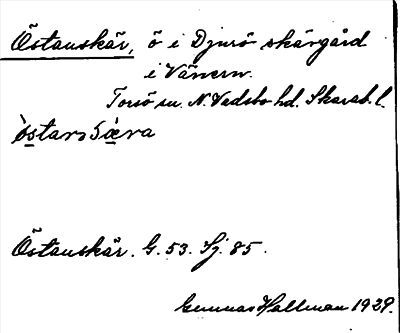 Östanskär, ö i Djurö skärgård
i Vänern.
Torsö sn. N. Vadsbo hd. Skarab. l.
Östanskär. G. 53. Sj. 85.
Gunnar Hallman 1929.